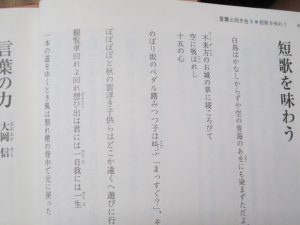 言葉と向き合う 短歌を味わう
短歌を味わう
白鳥はかなしからずや空の青海のあをにも染まずただよ
不来方のお城の草に寝ころびて
空に吸はれし
十五の心
のぼり坂のペダル踏みつつ子は叫ぶ「まっすぐ?」、そ
ぽぽぽぽと秋の雲浮き子供らはどこか遠くへ遊びに行
観覧車回れよ回れ想ひ出は君には一日我には一生
一本の道をゆくとき風は割れ僕の背中で元に戻った
言葉の力
大岡 信